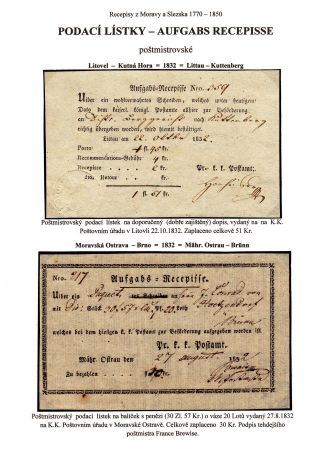 Recepisy z Moravy a Slezska 1770 – 1850
PODACÍ LÍSTKY – AUFGABS RECEPISSE
poštmistrovské
Litovel – Kutná Hora = 1832 = Littau - Kuttenberg
Aufgabs-Recepisse Nro. 359
Ueber ein wohlverwahrtes Schreiben, welches unten heutigem
Dato dem kaiserl. königl. Postamte allhier zur Beförderung
an nach Kuttenberg
richtig übergeben worden, wird hiemit bestättiget.
Littau am 22. 1832.
Porto 45 kr.
Recommendations-Gebühr 4 kr.
Recepisse 2 kr.
Pr. k. k. Postamt.
Sig. Retour kr.
1 fl. 51 kr.
Poštmistrovský podací lístek na doporučený (dobře zajištěný) dopis, vydaný na na K.K.
Poštovním úřadu v Litovli 22.10.1832. Zaplaceno celkově 51 Kr.
Moravská Ostrava – Brno = 1832 = Mähr. Ostrau – Brünn
Nro. 217
Aufgabs - Recepisse.
Ueber ein an
mit
Brünn
welches bei dem hiesigen k. k. Postamt zur Beförderung aufgegeben worden ist
Pr. k. k. Postamt.
Mähr. Ostrau den 27 august 1832
Zu bezahlen 30 kr.
Poštmistrovský podací lístek na balíček s penězi (30 Zl. 57 Kr.) o váze 20 Lotů vydaný 27.8.1832
na K.K. Poštovním úřadu v Moravské Ostravě. Celkově zaplaceno 30 Kr. Podpis tehdejšího
poštmistra France Brewise.